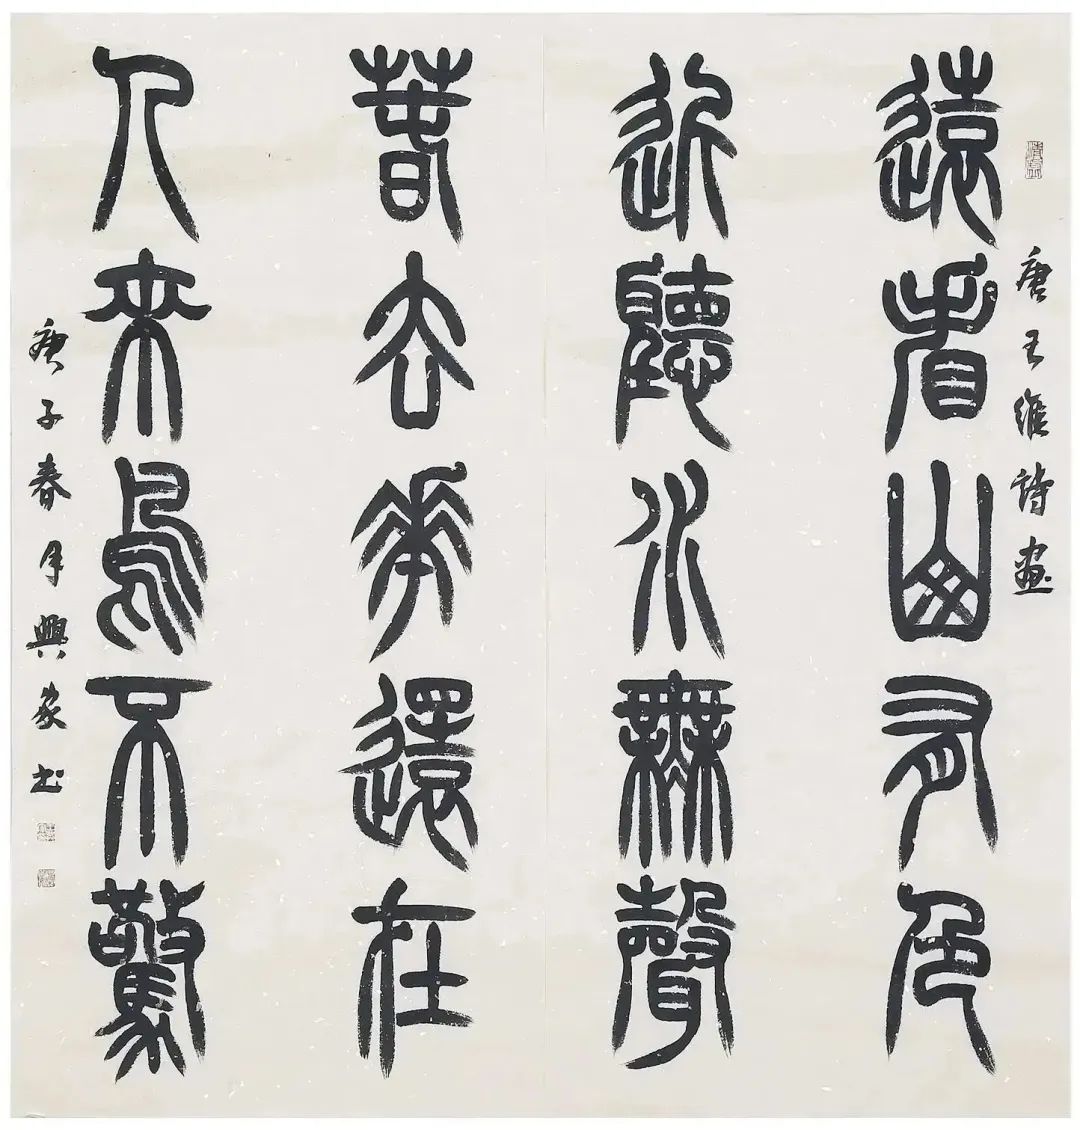 唐王維詩畫
遠看山有色
近聽水無聲
春去花還在
人來鳥不驚
庚子春月興家書